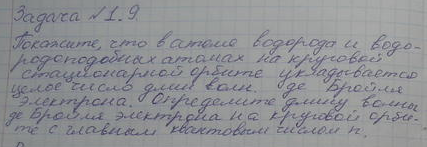 Задача №1.9.
Покажите, что в атоме водорода и водо-
родоподобных атомах на круговой
стационарной орбите укладывается
целое число длин волн. де Бройля
электрона. Определите длину волны
де Бройля электрона на круговой орби-
те с главным квантовым числом n.